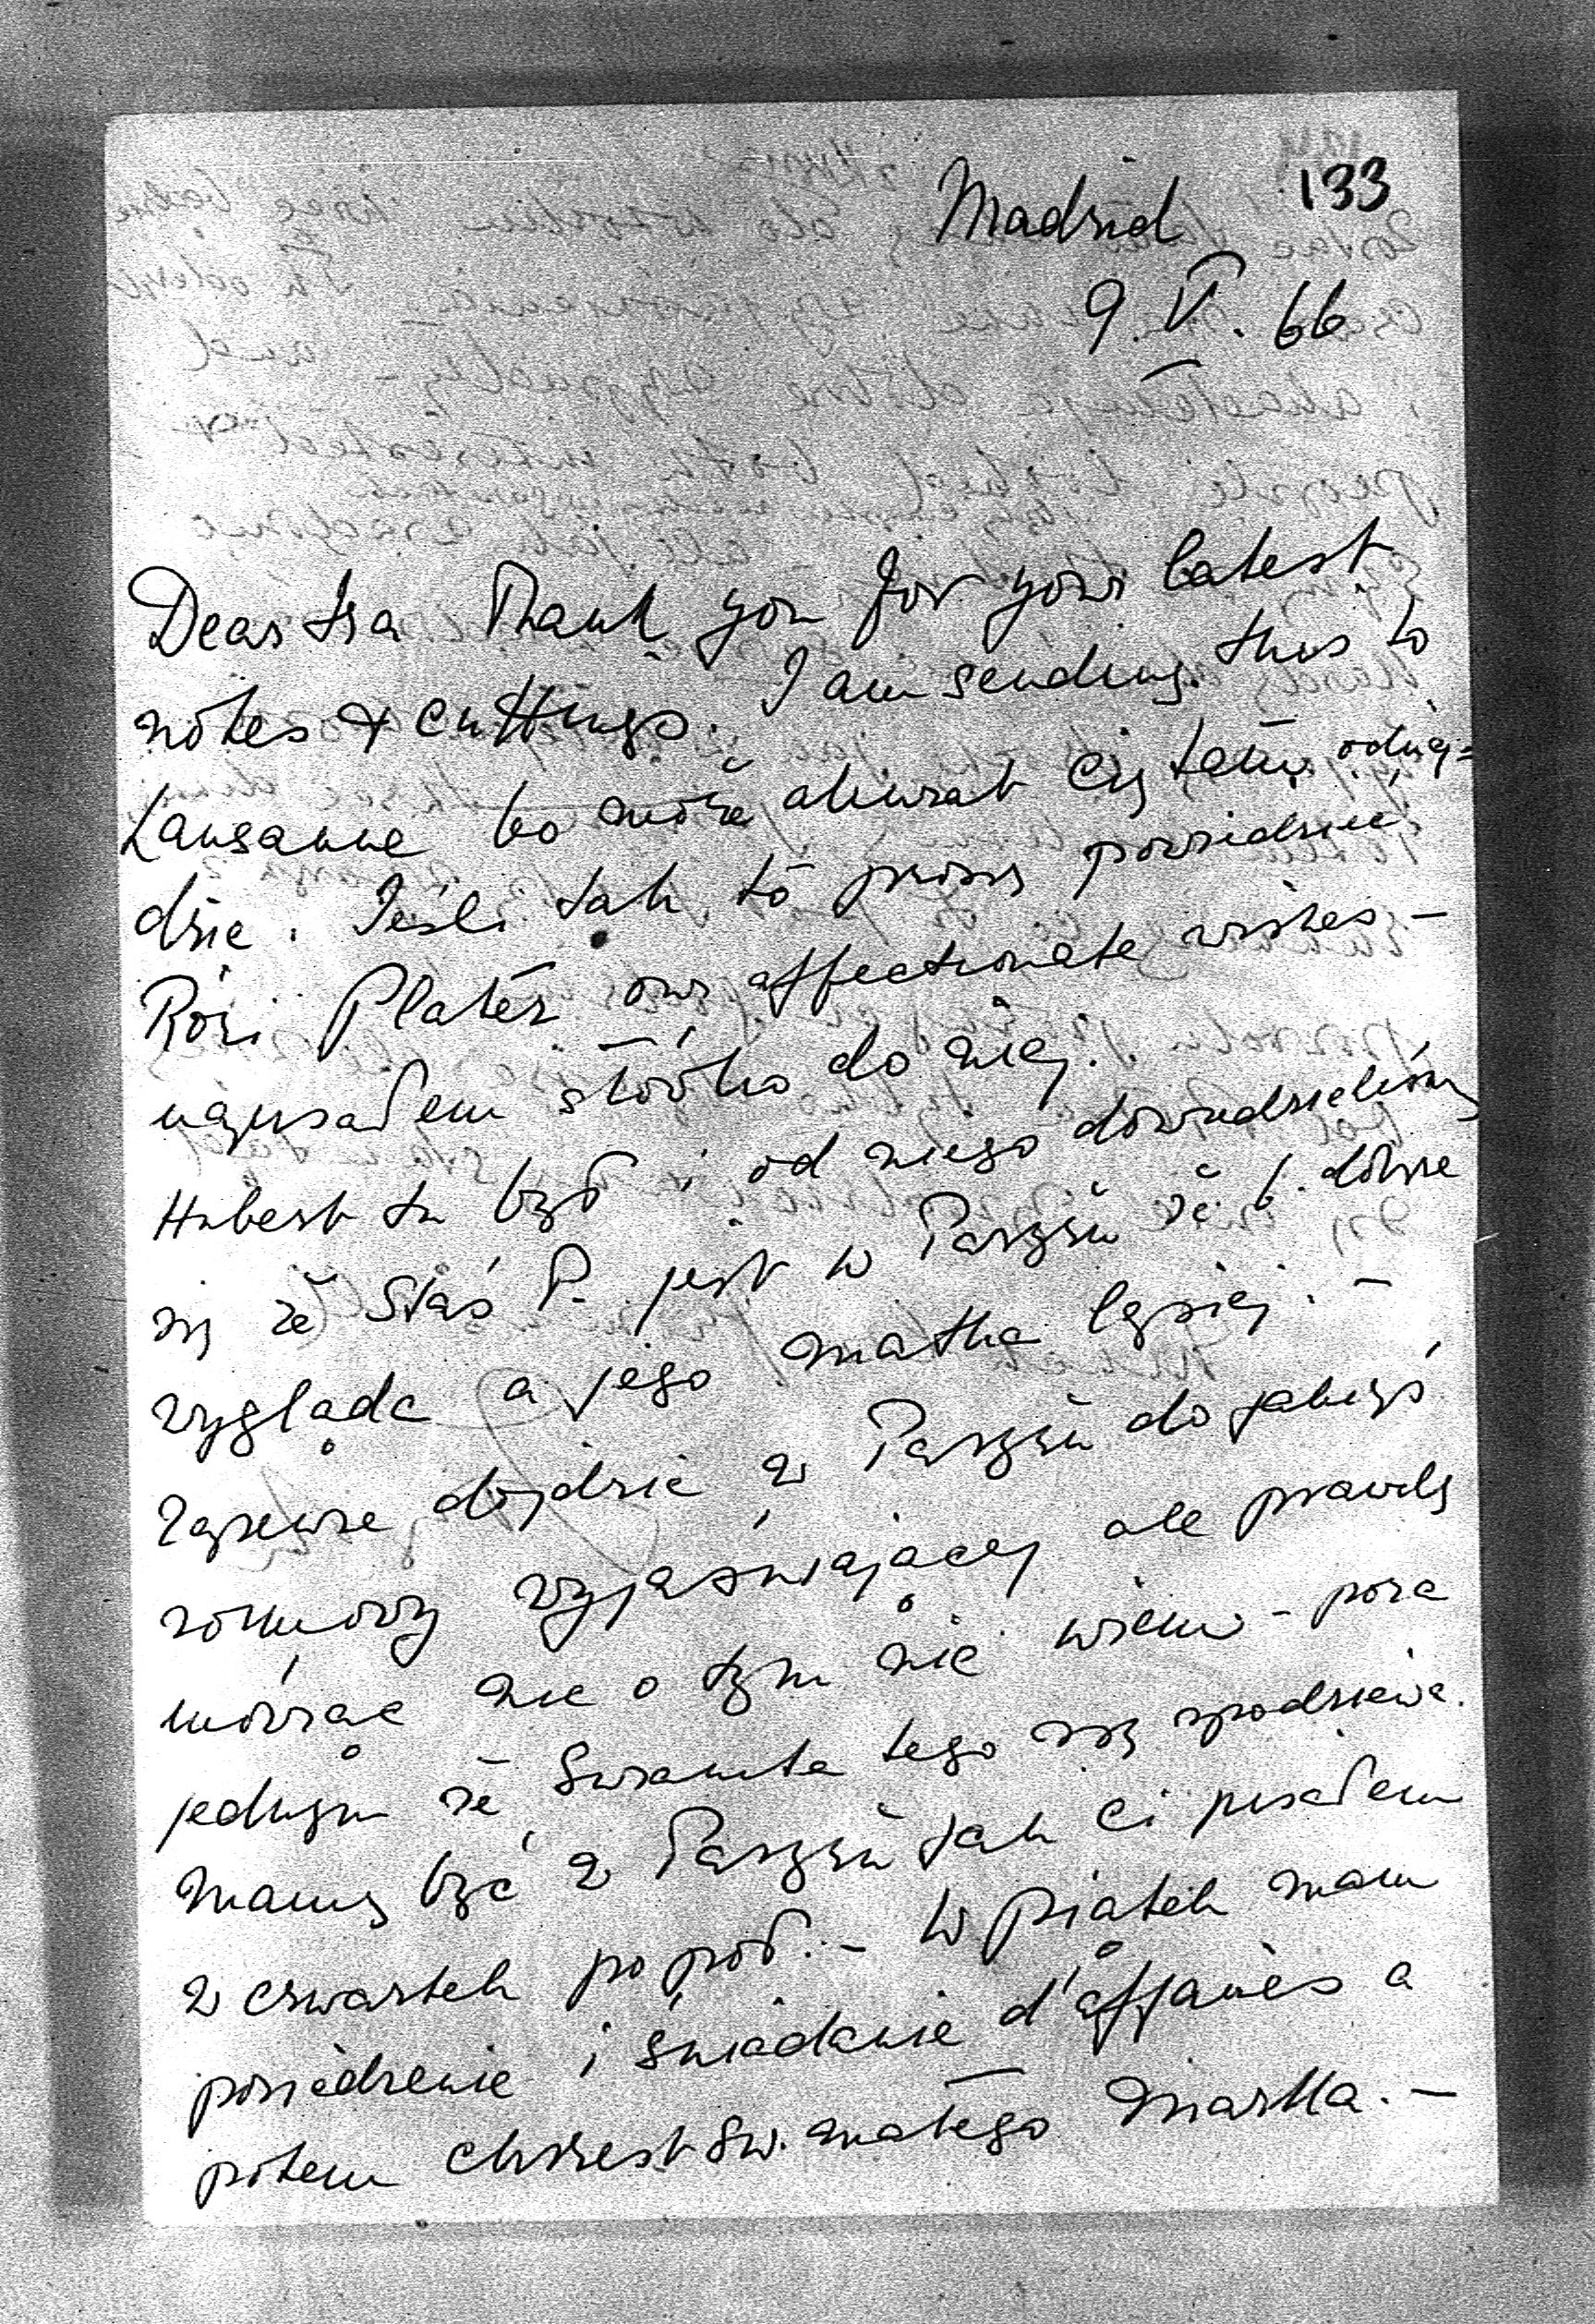 133
Madrid
9. VI. 66
Dear Isa Thank you for your latest
notes & cuttings. I am sending this to
Lausanne bo może akurat Cię tam odnaj=
dzie. Jeśli tak, to proszę powiedzieć
Rózi Plater our affectionate wishes –
napisałem słówko do niej.
Hubert tu był i od niego dowiedzieliśmy
się że Staś P. jest w Paryżu że b. dobrze
wygląda a jego matka lepiej. –
Zapewne dojdzie w Paryżu do jakiejś
rozmowy wyjaśniającej ale prawdę
mówiąc nic o tym nie wiem – poza
jednym że tego się spodziewa.
Mamy być w Paryżu jak Ci pisałem
w czwartek po poł. – W piątek mam
posiedzenie i śniadanie d'affaires a
potem chrzest św. małego Marka. –